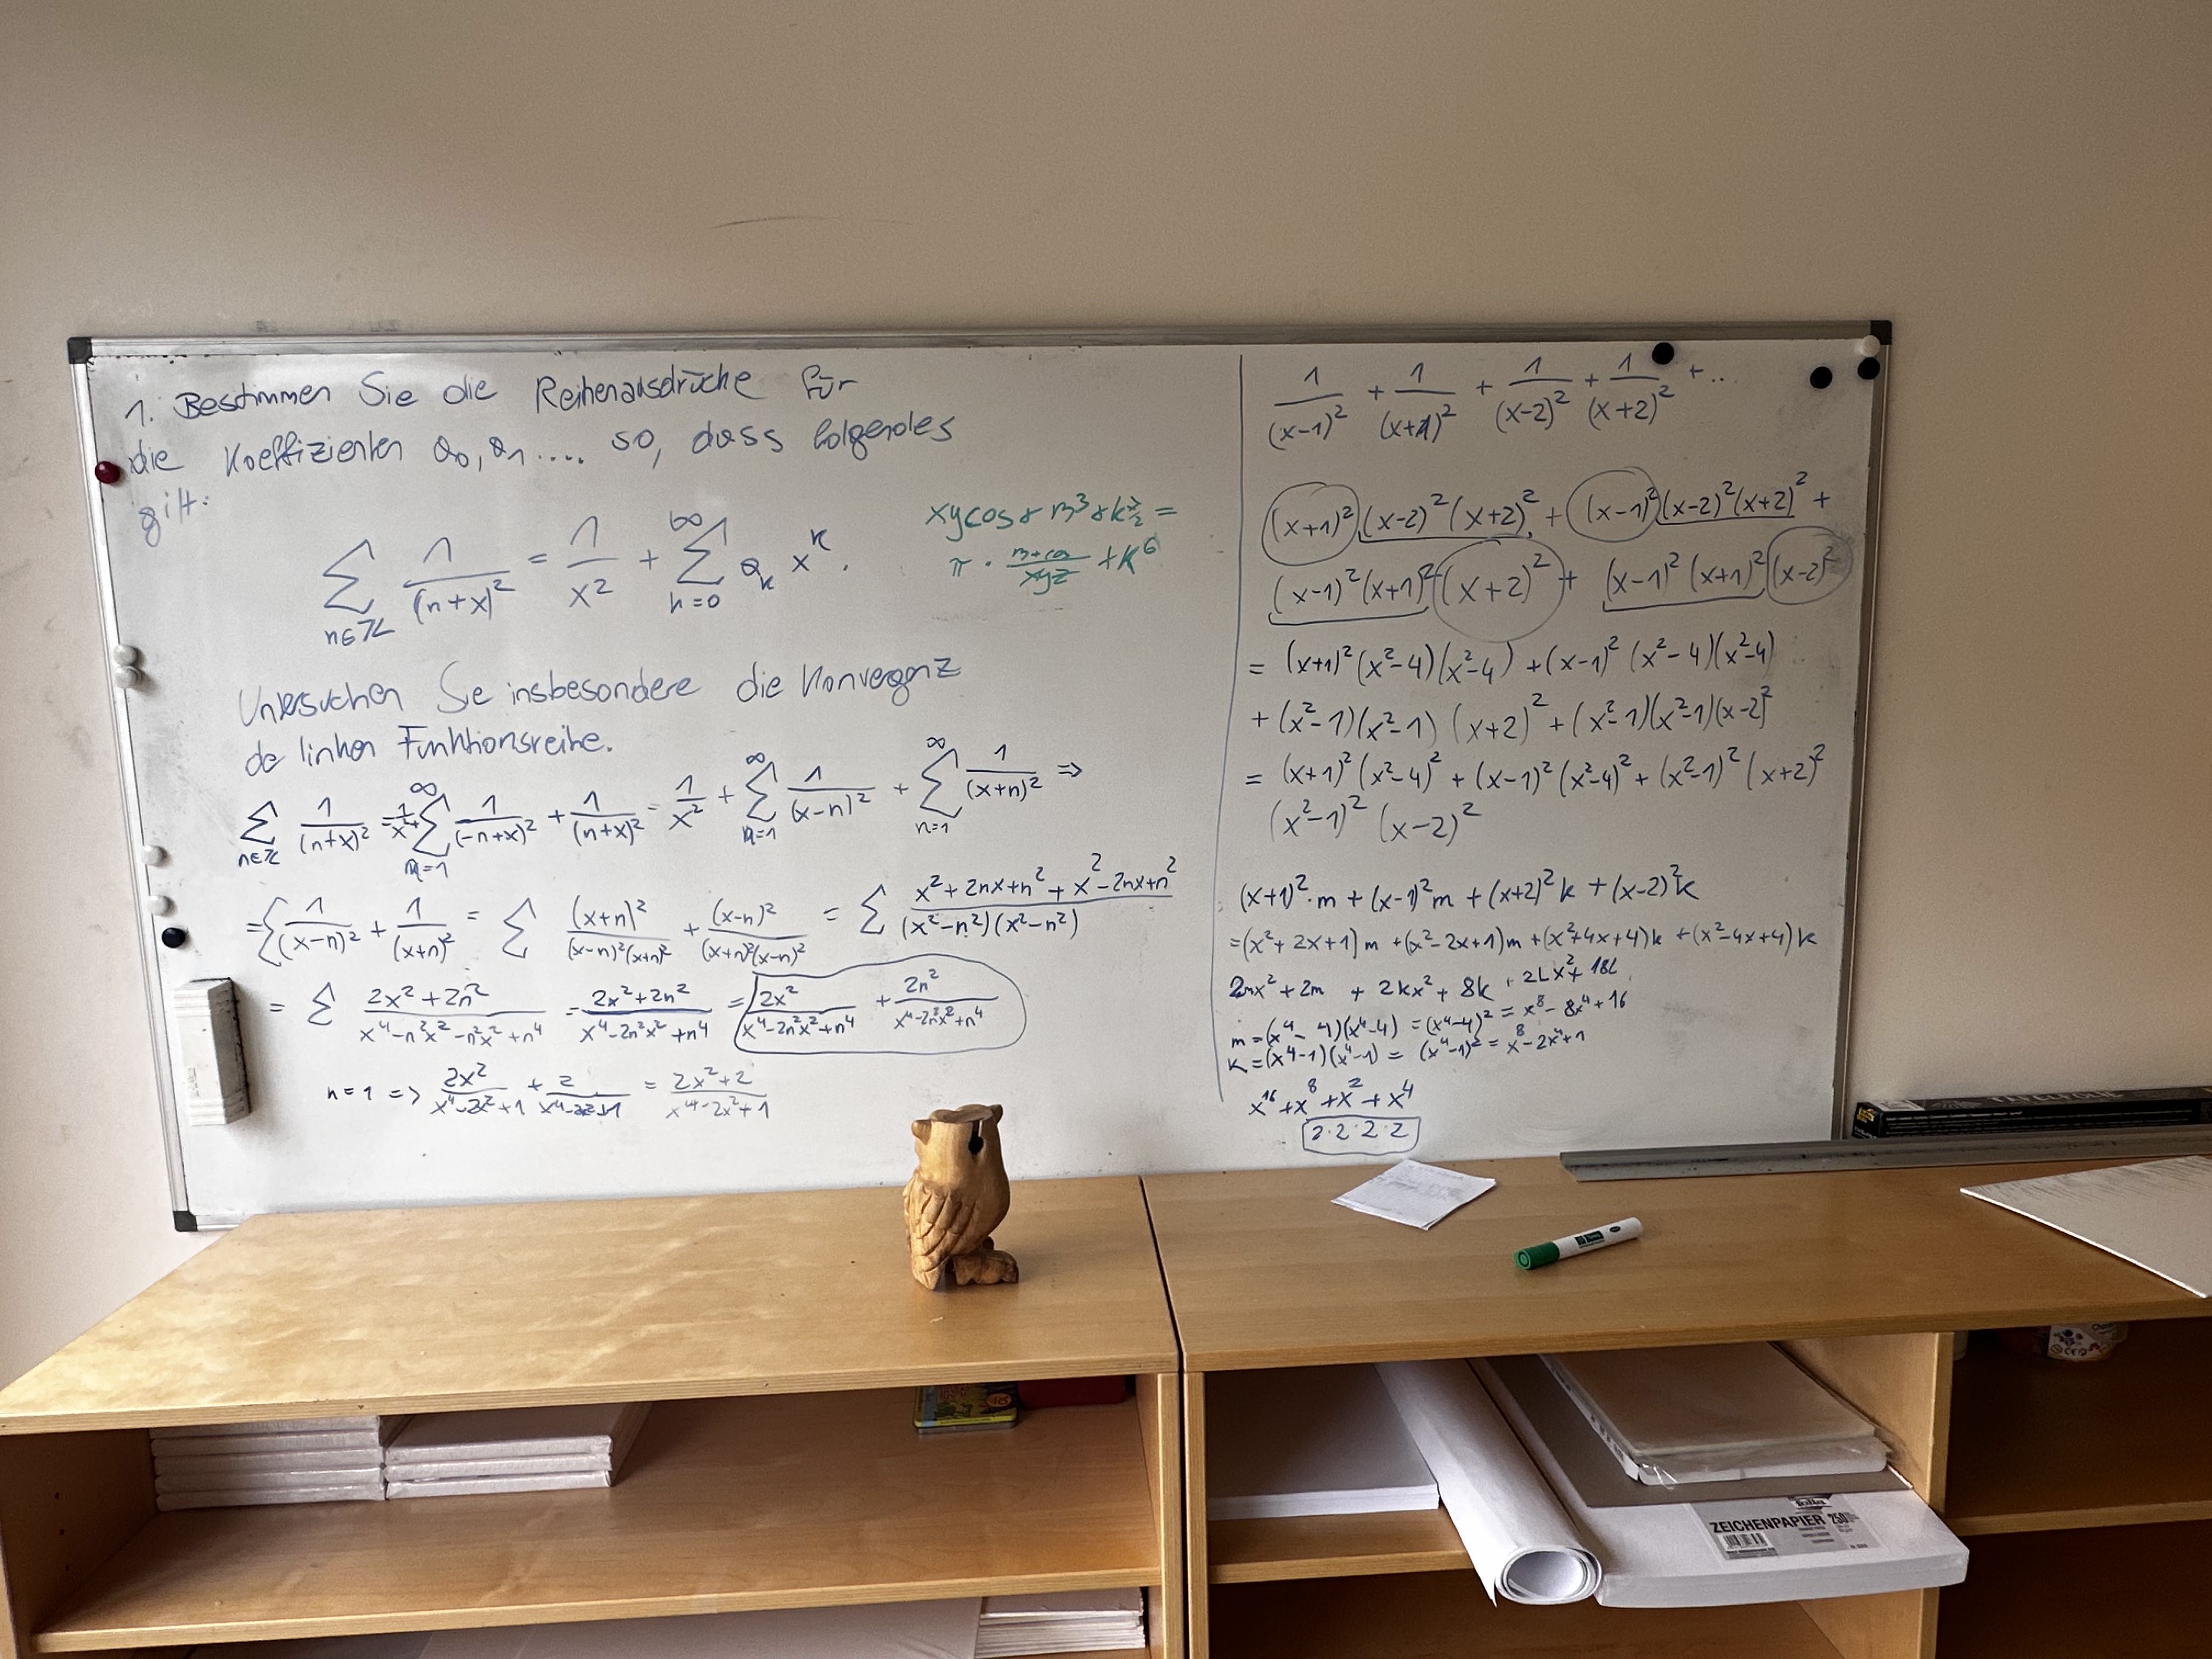 1. Bestimmen Sie die Reihenausdrücke für
die Koeffizienten a₀, a₁ .... so, dass folgendes
gilt:
∑_{n∈ℤ} 1/(n+x)² = 1/x² + ∑_{k=0}^{∞} a_k x^k.
xy cos γ m³ γ k z/2 =
π · /xyz + k⁶
Untersuchen Sie insbesondere die Konvergenz
de linken Funktionsreihe.
∑_{n∈ℤ} 1/(n+x)² = 1/x² + ∑_{n=1}^{∞} 1/(-n+x)² + 1/(n+x)² = 1/x² + ∑_{n=1}^{∞} 1/(x-n)² + ∑_{n=1}^{∞} 1/(x+n)² ⇒
= ∑ 1/(x-n)² + 1/(x+n)² = ∑ (x+n)²/((x-n)²(x+n)²) + (x-n)²/((x+n)²(x-n)²) = ∑ (x²+2nx+n²+x²-2nx+n²)/((x²-n²)(x²-n²))
= ∑ (2x²+2n²)/(x⁴-n²x²-n²x²+n⁴) = (2x²+2n²)/(x⁴-2n²x²+n⁴) = 2x²/(x⁴-2n²x²+n⁴) + 2n²/(x⁴-2n²x²+n⁴)
n=1 => 2x²/(x⁴-2x²+1) + 2/(x⁴-2x²+1) = (2x²+2)/(x⁴-2x²+1)
1/(x-1)² + 1/(x+1)² + 1/(x-2)² + 1/(x+2)² + ...
(x+1)²(x-2)²(x+2)² + (x-1)²(x-2)²(x+2)² +
(x-1)²(x+1)²(x+2)² + (x-1)²(x+1)²(x-2)²
= (x+1)²(x²-4)(x²-4) + (x-1)²(x²-4)(x²-4)
+ (x²-1)(x²-1)(x+2)² + (x²-1)(x²-1)(x-2)²
= (x+1)²(x²-4)² + (x-1)²(x²-4)² + (x²-1)²(x+2)²
(x²-1)²(x-2)²
(x+1)²·m + (x-1)²m + (x+2)²k + (x-2)²k
=(x²+2x+1)m + (x²-2x+1)m + (x²+4x+4)k + (x²-4x+4)k
2mx²+2m + 2kx²+8k + 2Lx²+18L
m=(x⁴-4)(x⁴-4) = (x⁴-4)² = x⁸-8x⁴+16
k=(x⁴-1)(x⁴-1) = (x⁴-1)² = x⁸-2x⁴+1
x¹⁶+x⁸+x²+x⁴
2·2·2·2
ZEICHENPAPIER 250